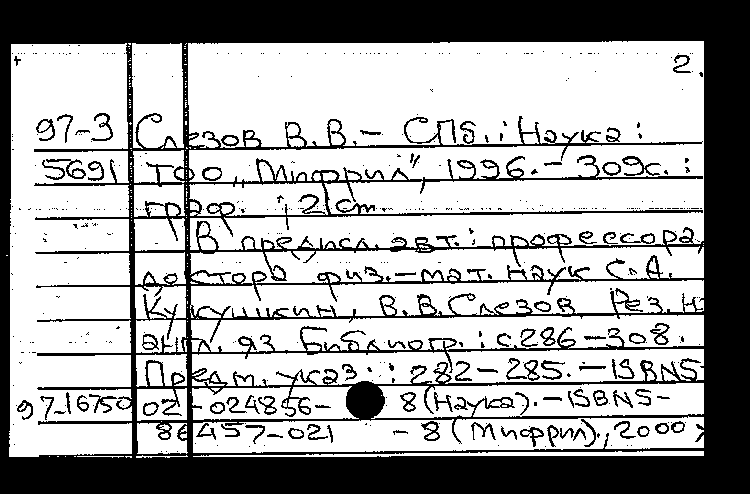 2.
97-3 Слезов В.В.– СПб.: Наука :
5691 ТОО „Мифрил“, 1996.– 309с. :
граф. ; 21 ст.
В предисл. авт.: профессора,
доктора физ.–мат. наук С.А.
Кукушкин, В.В.Слезов. Рез. на
англ. яз. Библиогр.: с.286–308.
Предм. указ.: 282–285. –ISBN5-
97-16750 02-024856- 8 (Наука).–ISBN5-
86457-021 -8 (Мифрил)., 2000